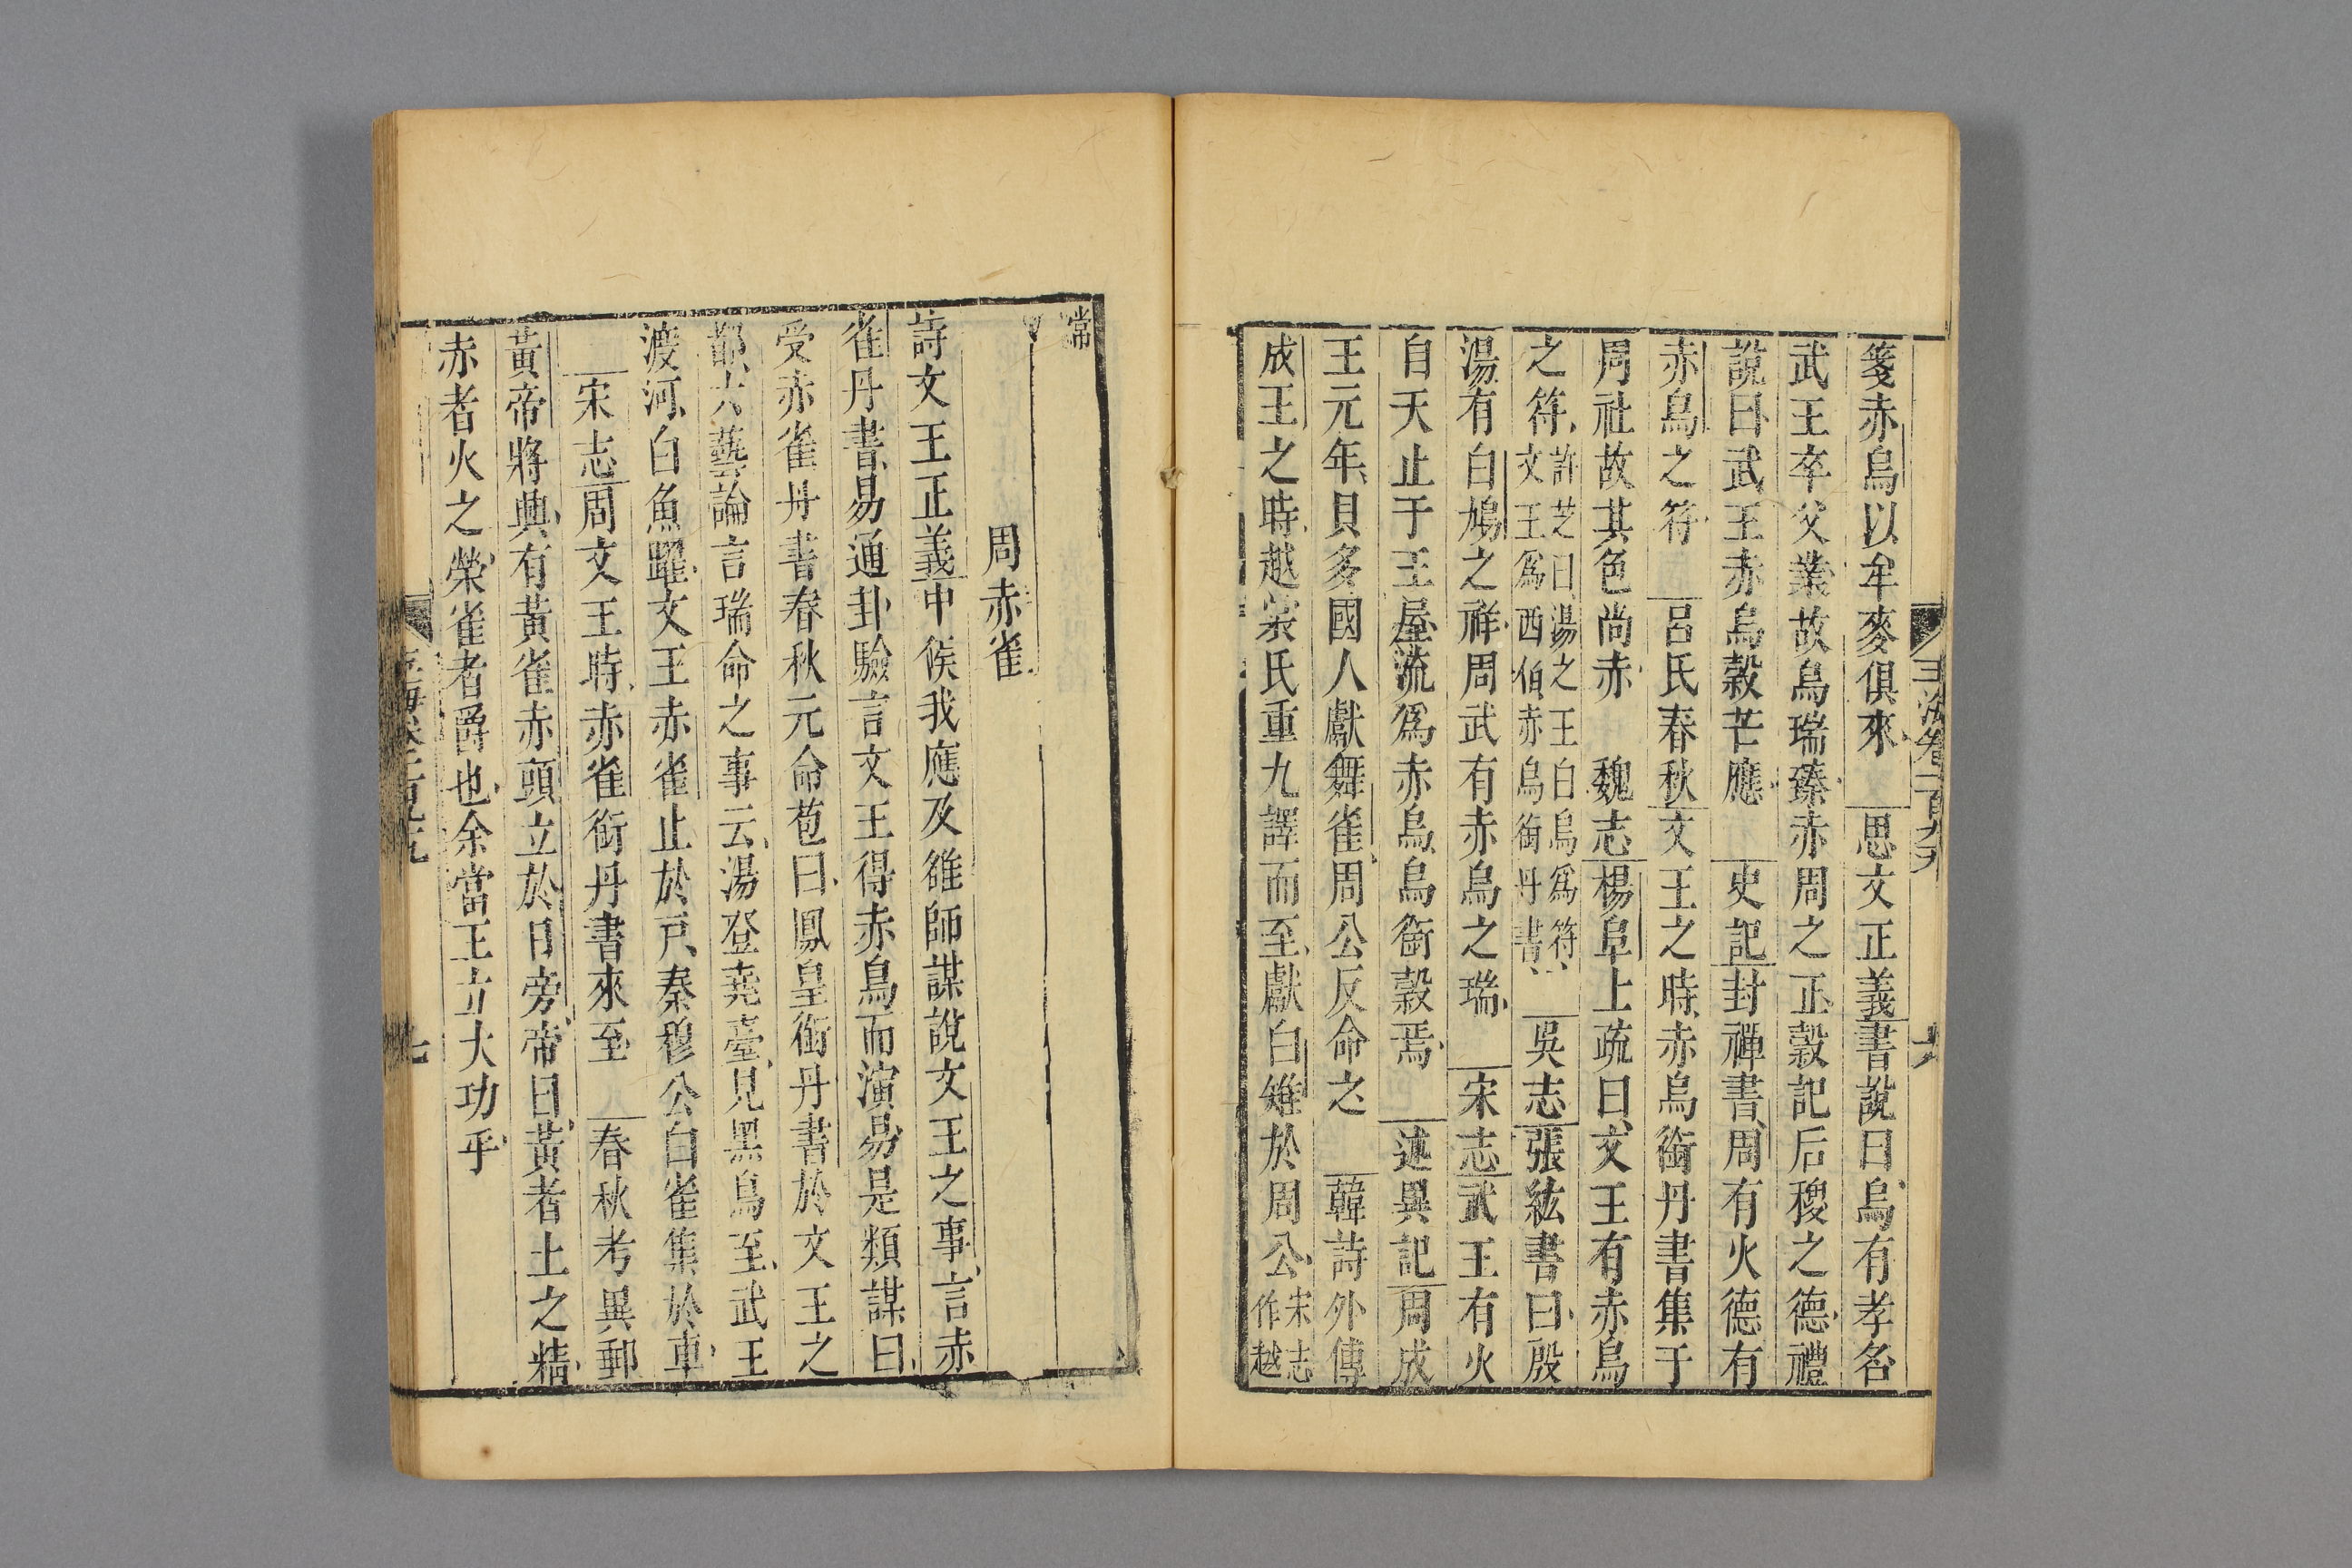 箋赤烏以牟麥俱來思文正義書說曰烏有孝名
武王卒父業故烏瑞臻赤周之正穀記后稷之德禮
說曰武王赤烏穀芒應史記封禪書周有火德有
赤烏之符呂氏春秋文王之時赤烏銜丹書集于
周社故其色尚赤魏志楊阜上疏曰文王有赤烏
之符許芝曰湯之王白烏爲符文王爲西伯赤烏銜丹書吳志張紘書曰殷
湯有白鳩之祥周武有赤烏之瑞宋志武王有火
自天止于王屋流爲赤烏烏銜穀焉述異記周成
王元年貝多國人獻舞雀周公反命之韓詩外傳
成王之時越裳氏重九譯而至獻白雉於周公宋志作越
常
周赤雀
詩文王正義中候我應及雒師謀說文王之事言赤
雀丹書易通卦驗言文王得赤鳥而演易是類謀曰
受赤雀丹書春秋元命苞曰鳳皇銜丹書於文王之
都六藝論言瑞命之事云湯登堯臺見黑鳥至武王
渡河白魚躍文王赤雀止於戶秦穆公白雀集於車
宋志周文王時赤雀銜丹書來至春秋考異郵
黃帝將興有黃雀赤頭立於日旁帝曰黃者土之精
赤者火之榮雀者爵也余當王立大功乎